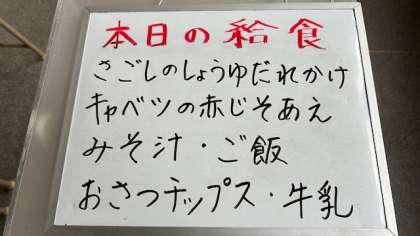 本日の給食
さごしのしょうゆだれかけ
キャベツの赤じそあえ
みそ汁・ご飯
おさつチップス・牛乳